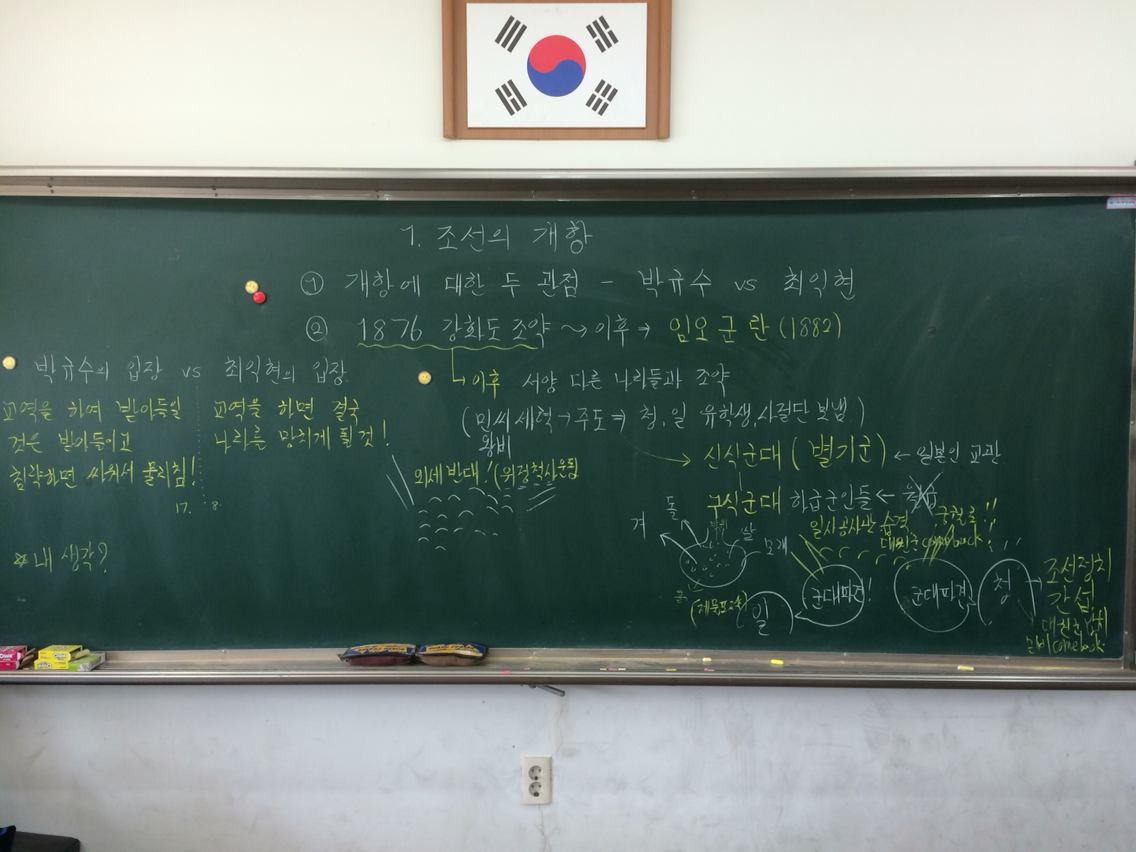 1. 조선의 개항
① 개항에 대한 두 관점 - 박규수 vs 최익현
② 1876 강화도 조약 ~> 이후 → 임오군란(1882)
박규수의 입장 vs 최익현의 입장
교역을 하여 받아들일
것은 받아들이고
침략하면 싸워서 물리침!
교역을 하면 결국
나라를 망치게 될 것!
17. 8.
☆ 내 생각?
이후 서양 다른 나라들과 조약
(민씨 세력 → 주도 ⇒ 청, 일 유학생, 사절단 보냄)
왕비
외세 반대! (위정척사운동
신식군대 (별기군) ← 일본인 교관
구식군대 하급군인들 ←
겨
돌
쌀
모래
일본공사관 습격
궁궐로!!
대원군 come back!
(제물포조약)
일
군대파견!
군대파견
청
조선정치
간섭
대원군 납치
민비 come back